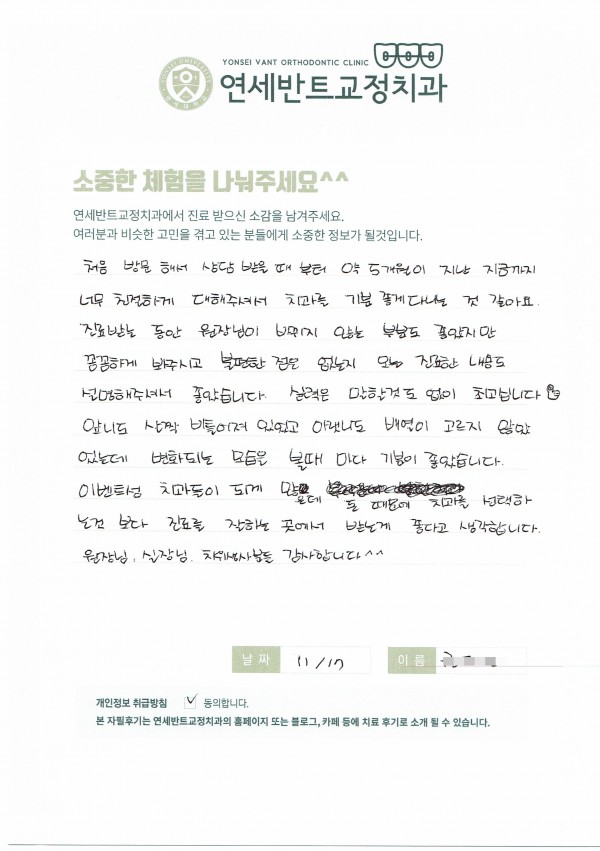 YONSEI VANT ORTHODONTIC CLINIC
연세반트교정치과
소중한 체험을 나눠주세요^^
연세반트교정치과에서 진료 받으신 소감을 남겨주세요.
여러분과 비슷한 고민을 겪고 있는 분들에게 소중한 정보가 될것입니다.
처음 방문 해서 상담 받을 때 부터 약 5개월이 지난 지금까지
너무 친절하게 대해주셔서 치과를 기분 좋게 다니는 것 같아요.
진료받는 동안 원장님이 바뀌지 않는 부분도 좋았지만
꼼꼼하게 봐주시고 불편한 점은 없는지 오늘 진료한 내용도
설명해주셔서 좋았습니다. 실력은 말할것도 없이 최고입니다
앞니도 살짝 비틀어져 있었고 아랫니도 배열이 고르지 않았
었는데 변화되는 모습을 볼때 마다 기분이 좋았습니다.
이벤트성 치과들이 되게 많은데 돈 때문에 치과를 선택하
는것 보다 진료를 잘하는 곳에서 받는게 좋다고 생각합니다.
원장님, 실장님, 치위생사분들 감사합니다^^
날 짜 11/17 이 름
개인정보 취급방침 ✓ 동의합니다.
본 자필후기는 연세반트교정치과의 홈페이지 또는 블로그, 카페 등에 치료 후기로 소개 될 수 있습니다.